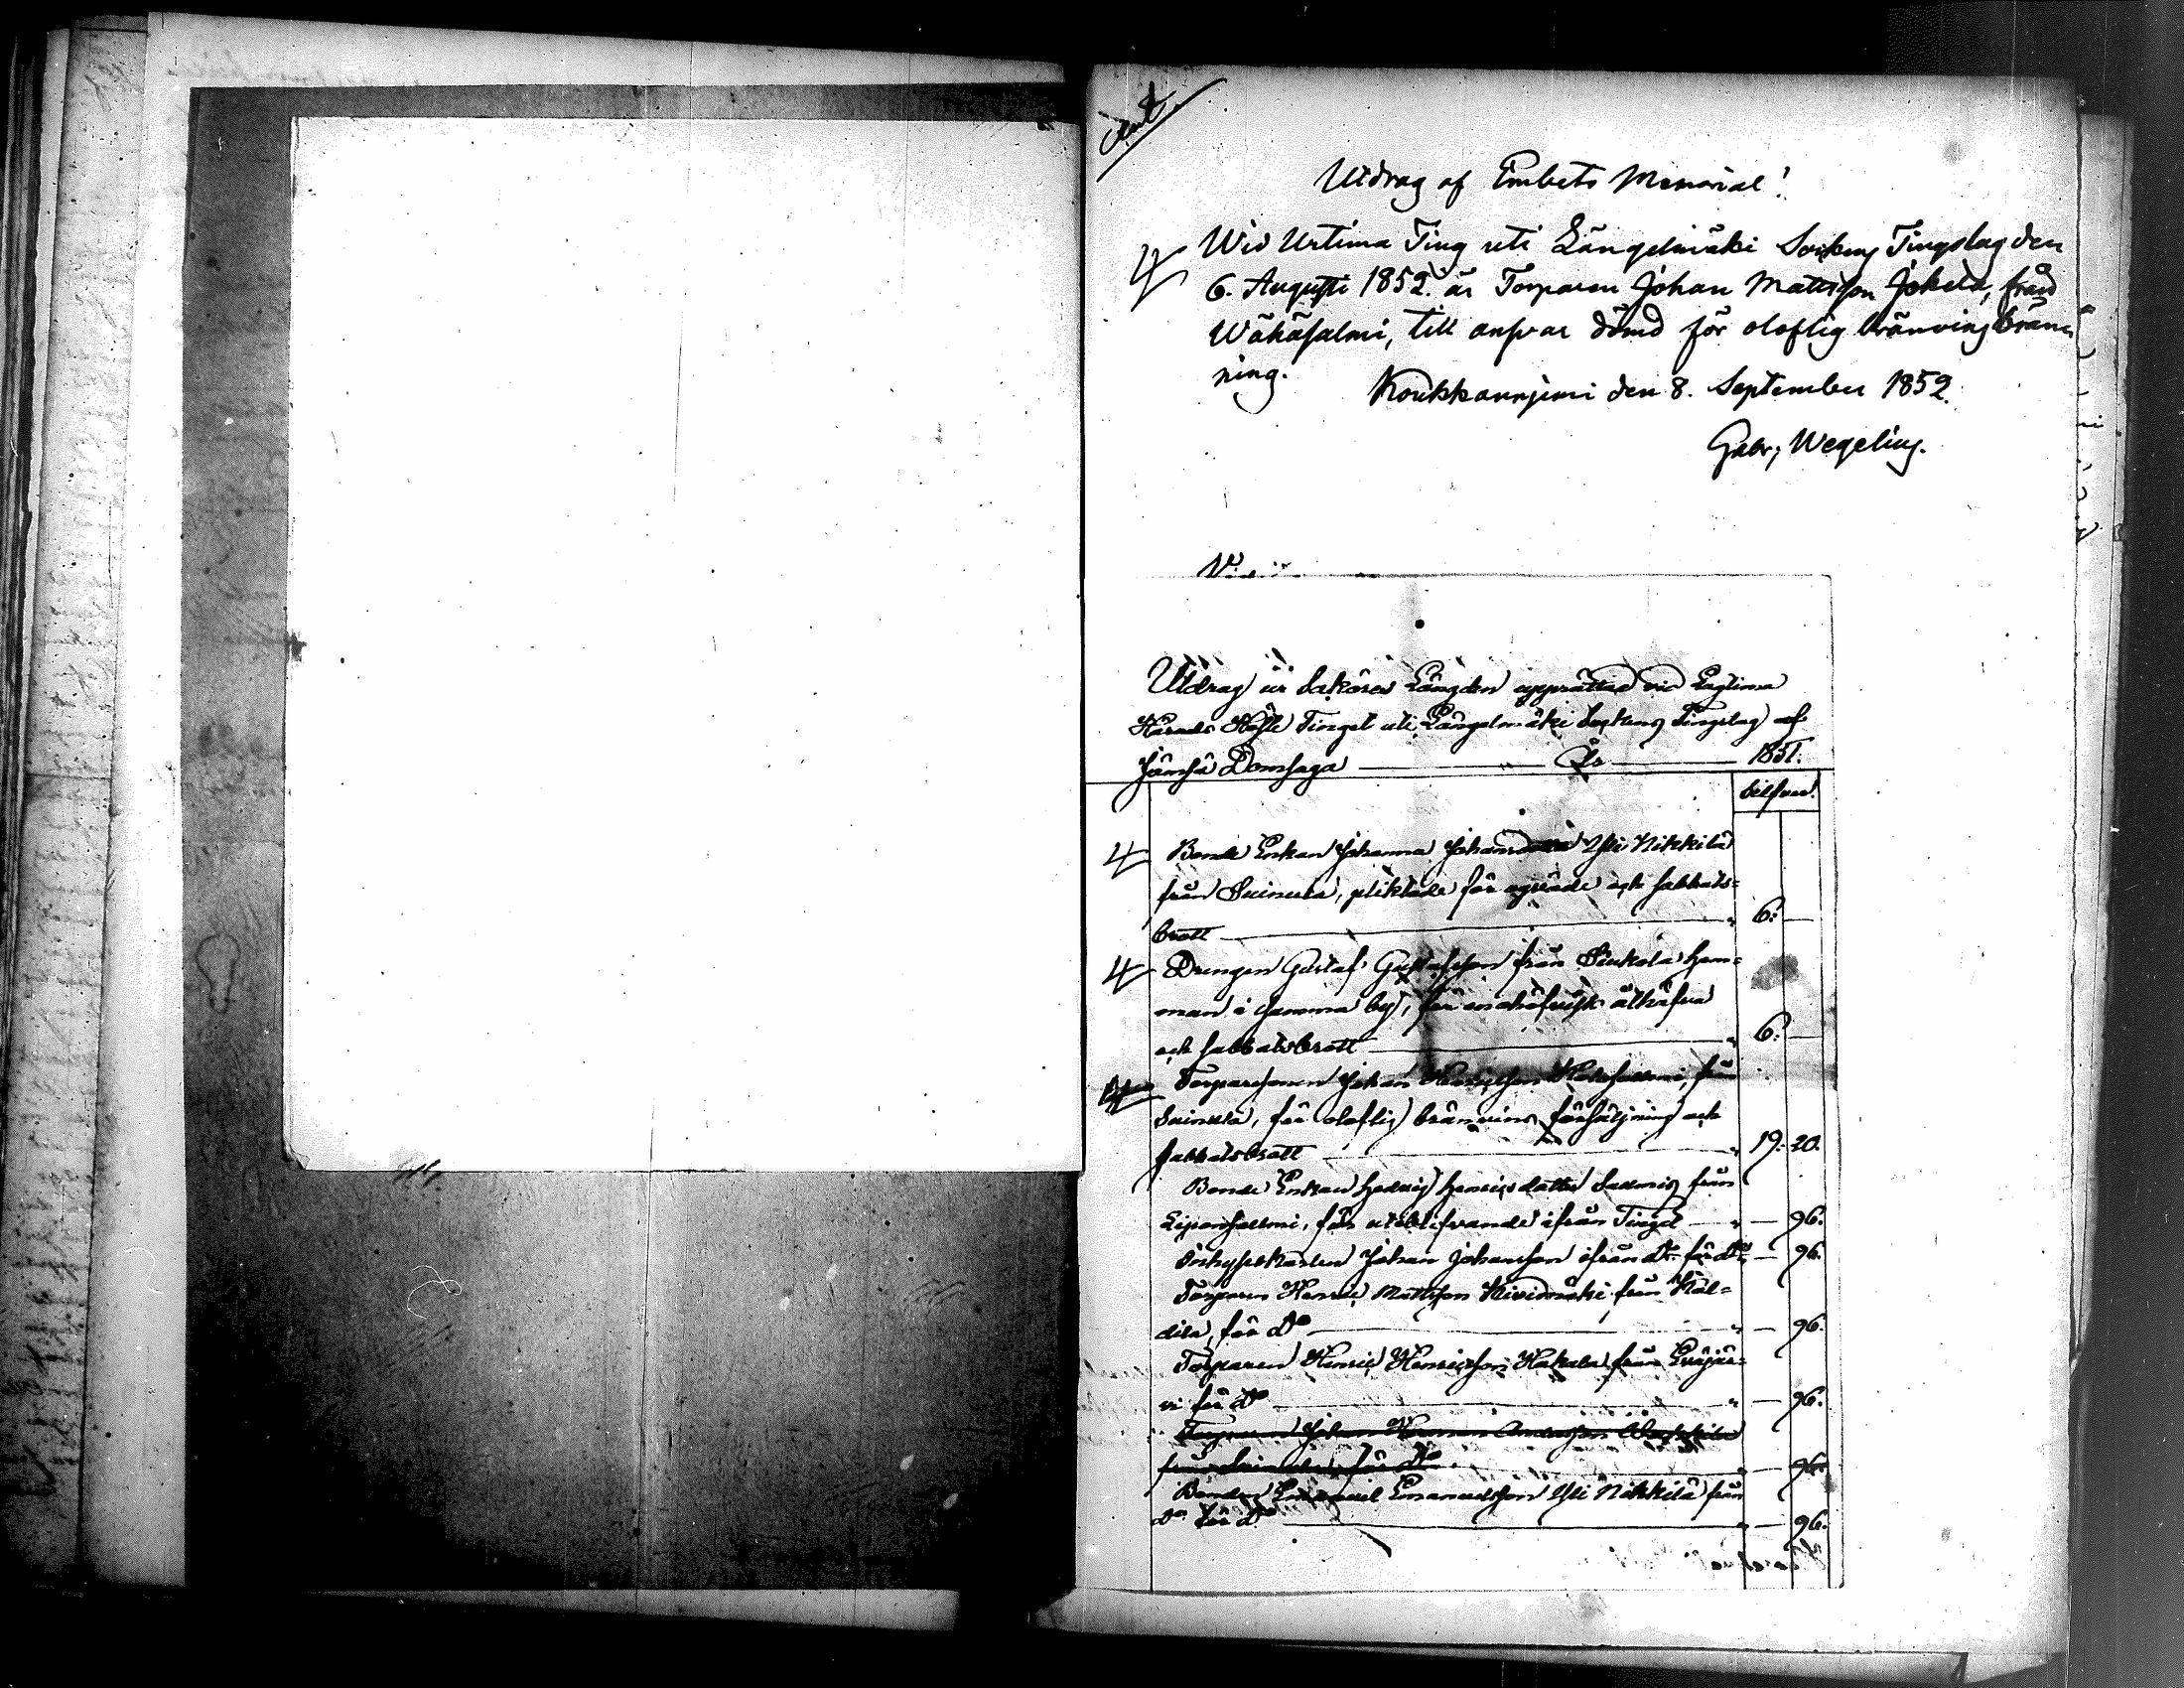 Utdrag af Embets Memorial!
Wid Urtima Ting uti Längelmäki Sockens Tingslag den
6. Augusti 1852. är Torparen Johan Mattsson Jokela, från
Wähäsalmi, till ansvar dömd för oloflig bränvinsbränn
ning.
Koukkarniemi den 8. September 1852.
Gabr, Wegelius.
Utdrag ur Saköres Längden upprättad vid Lagtima
Härads Höste Tinget uti Längelmäki Sockens Tingslag af
Jämsä Domsaga År 1851.
Silfver.
Bonde Enkan Johanna Johansdotter Yli Nikkilä
från Suinula, pliktade för ogväde och sabbats-
brott 6:
Drengen Gustaf Gustafsson från Siukola hem-
man i samma by, för
och sabbatsbrott 6:
Torparesonen Johan Henricsson från
Suinula, för oloflig bränvins försäljning och
sabbatsbrott 19: 20.
Bonde Enkan Hedvig Henricsdotter från
för uteblifvande ifrån Tinget 96.
Inhyseskarlen Johan Johansson ifrån do för do 96.
Torparen Henric Mattsson Kivimäki från Käl-
dila, för do 96.
Torparen Henric Henricsson Hakala från Eräjär-
vi för do 96.
Torparen Johan Herman Andersson
från för do 96.
Bonden Emanuel Emanuelsson Yli Nikkilä från
do för do 96.